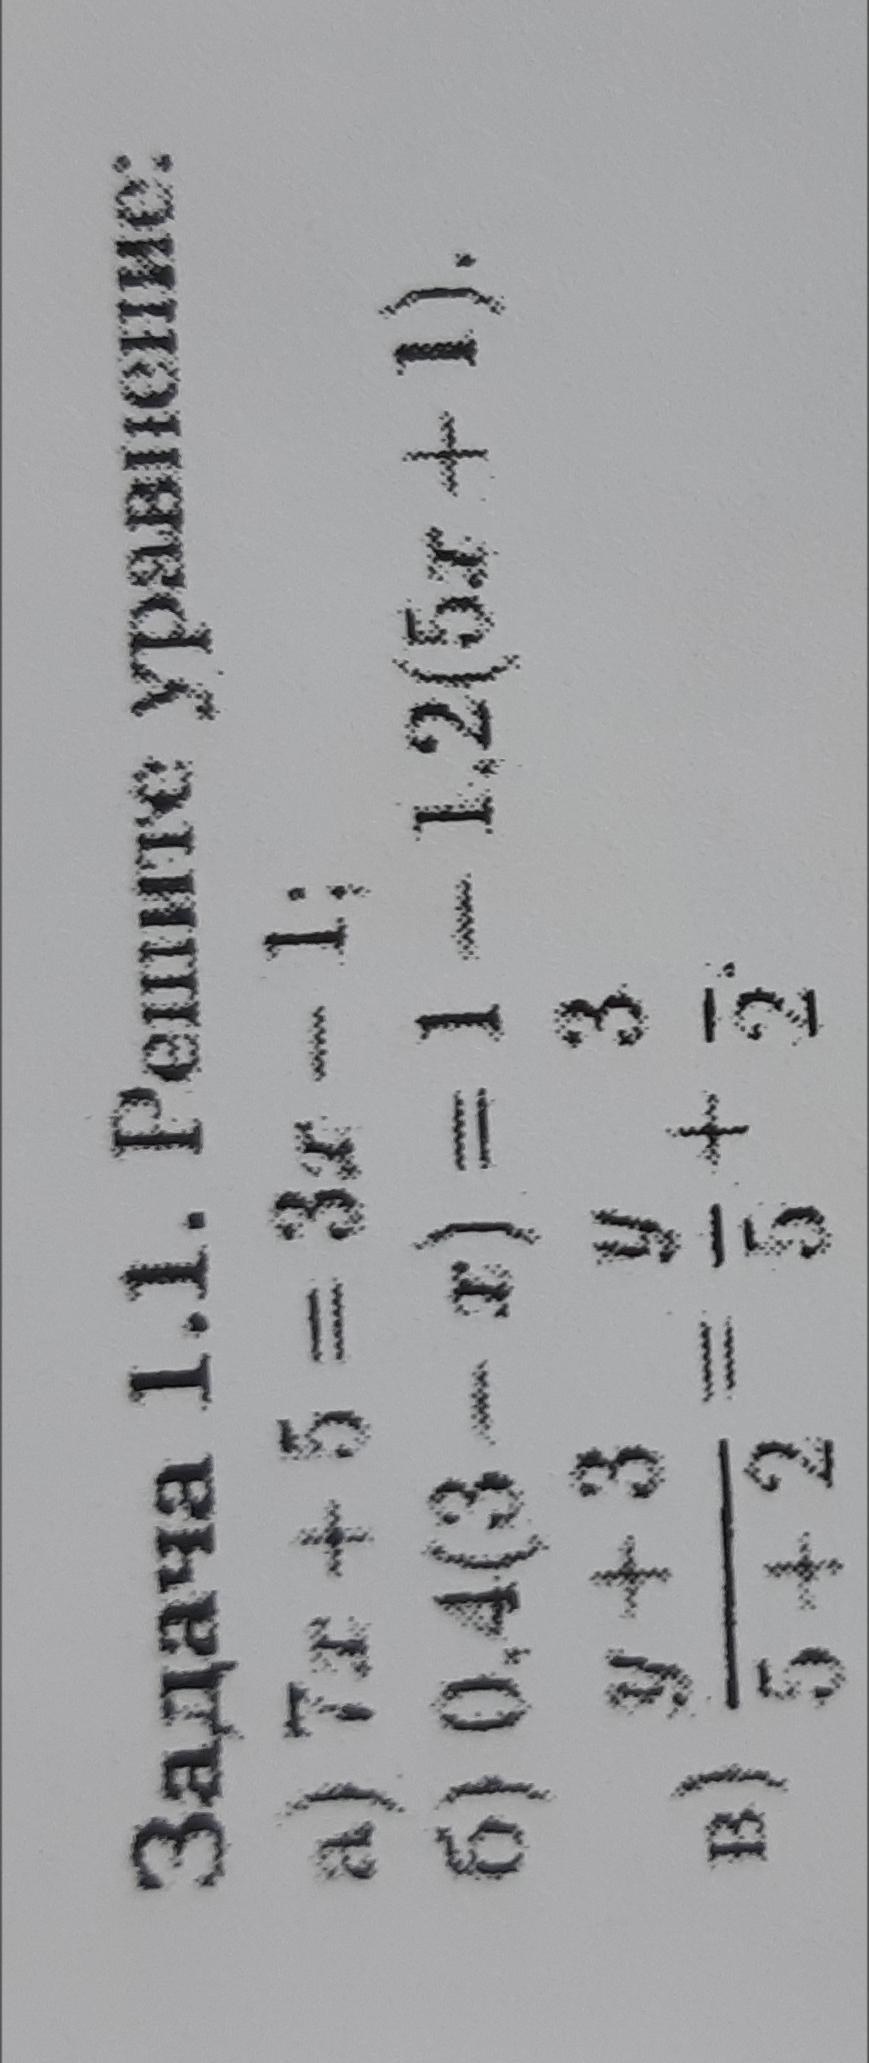 Задача 1.1. Решите уравнение:
а) 7x + 5 = 3x − 1;
б) 0,4(3 − x) = 1 − 1,2(5x + 1).
в) (y + 3)/(5 + 2) = y/5 + 3/2.